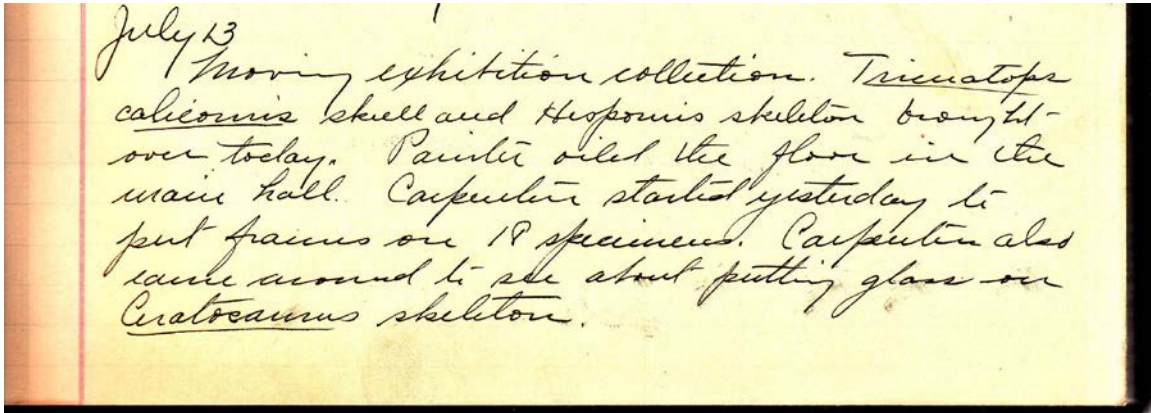 July 13
Moving exhibition collection. Triceratops
calicornis skull and Hesperornis skeleton brought
over today. Painter oiled the floor in the
main hall. Carpenter started yesterday to
put frames on 18 specimens. Carpenter also
came around to see about putting glass on
Ceratosaurus skeleton.